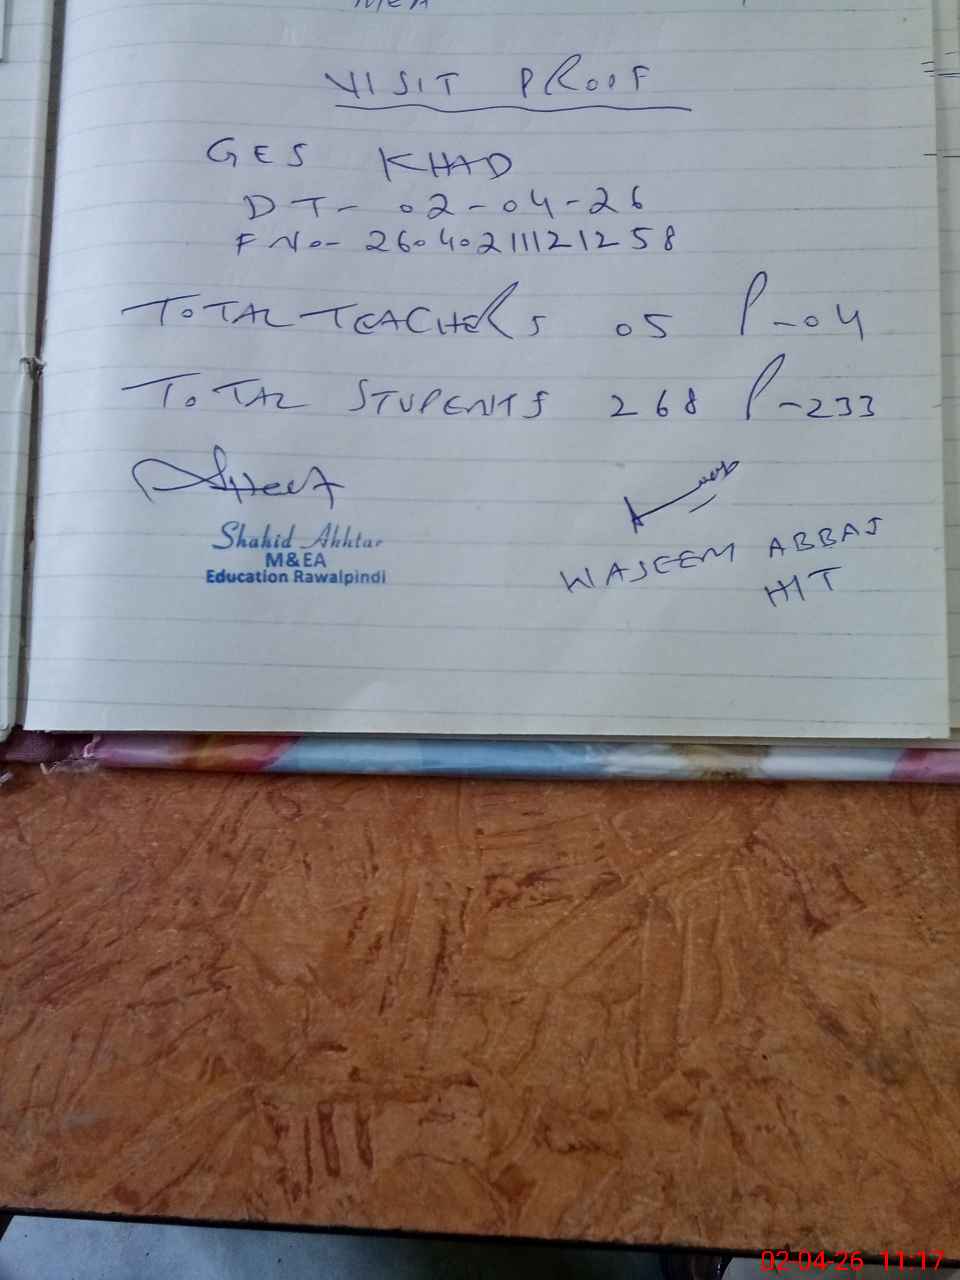 VISIT PROOF
GES KHAD
DT- 02-04-26
F No- 26040211121258
TOTAL TEACHERS 05 P-04
TOTAL STUDENTS 268 P-233
Shahid Akhtar
M&EA
Education Rawalpindi
WASEEM ABBAS
HIT
02-04-26 11:17